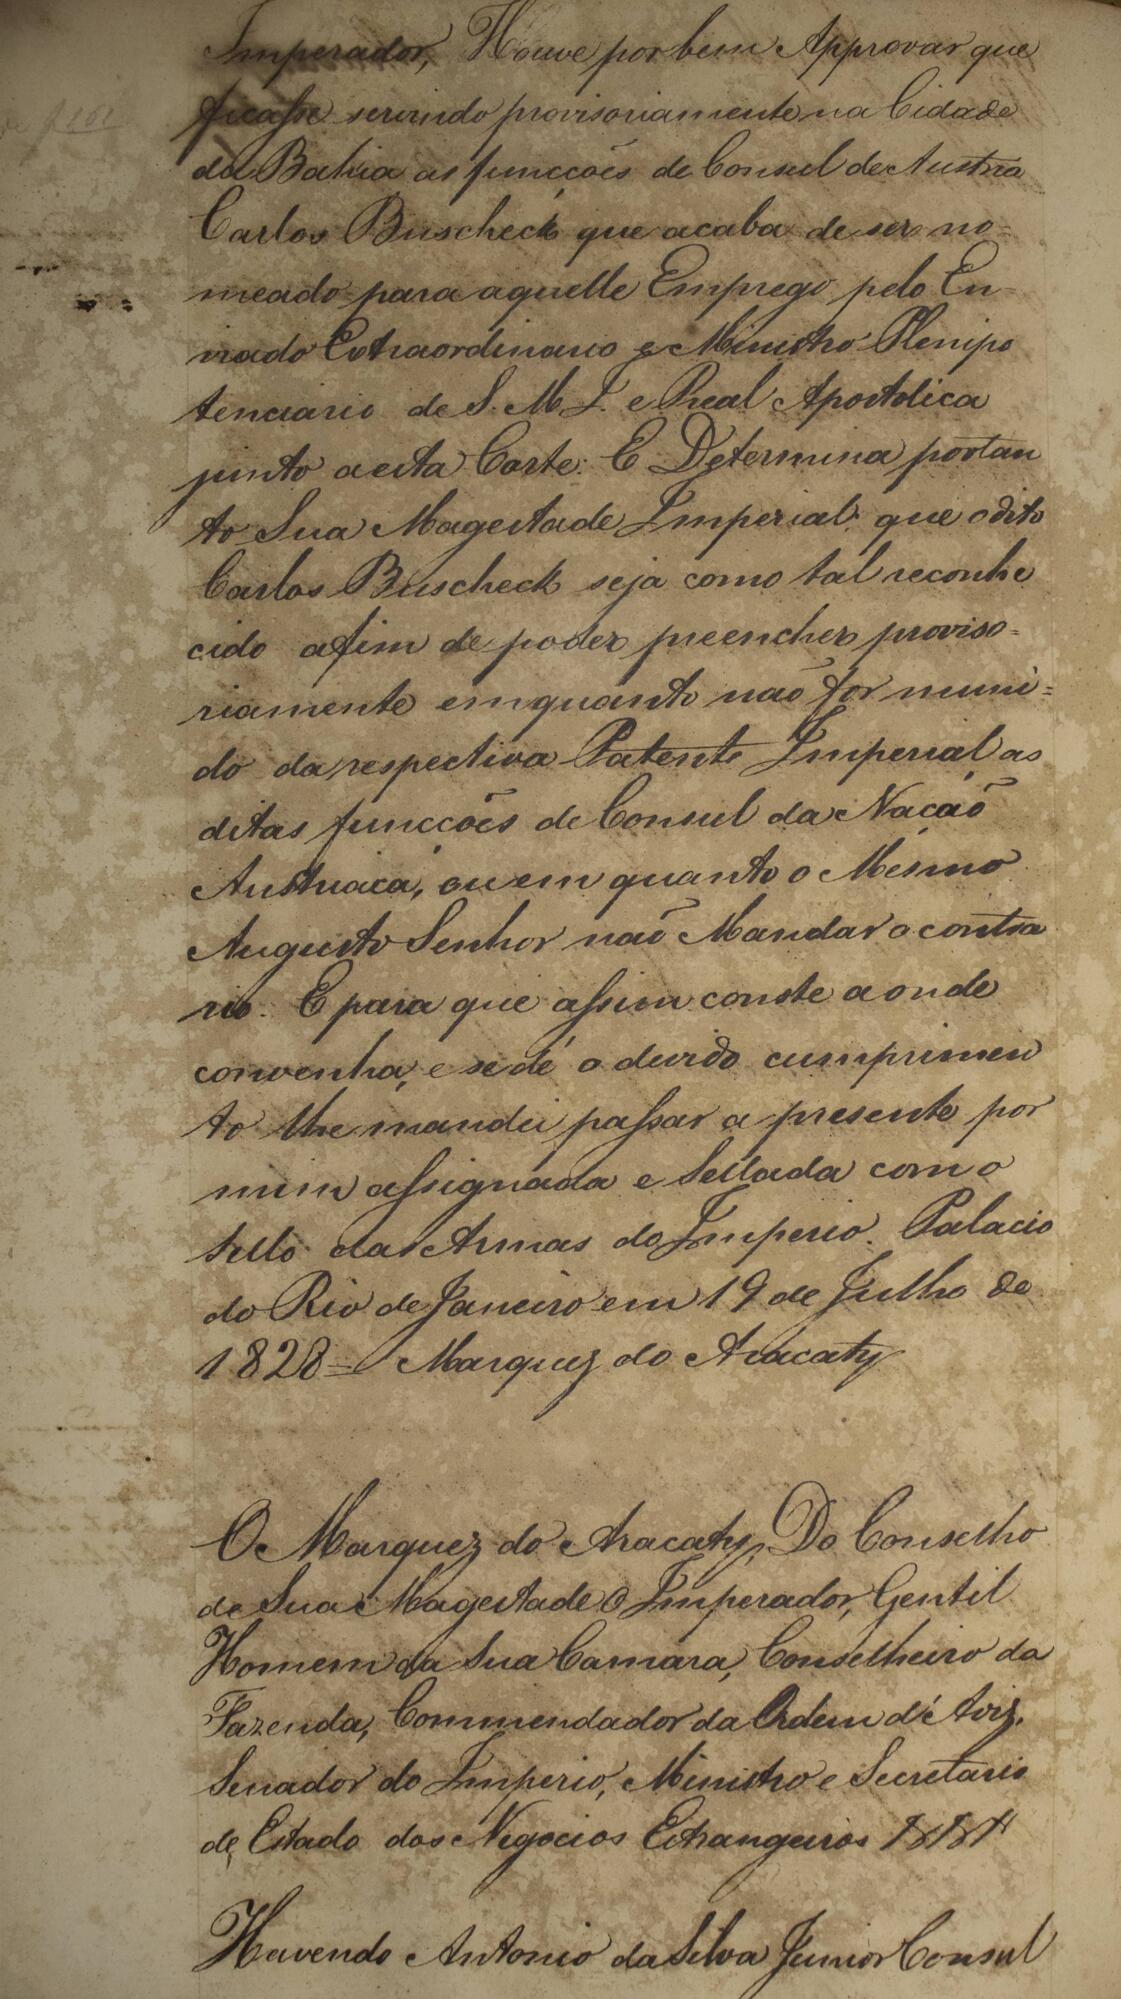 Imperador, Houve por bem Approvar que
ficasse servindo provisoriamente na Cidade
da Bahia as funcções de Consul de Austria
Carlos Buscheck que acaba de ser no=
meado para aquelle Emprego pelo En
viado Extraordinario e Ministro Plenipo
tenciario de S. M. I. e Real Apostolica
junto a esta Corte. E Determina portan
to Sua Magestade Imperial que o dito
Carlos Buscheck seja como tal reconhe
cido afim de poder preencher proviso=
riamente emquanto não for muni=
do da respectiva Patente Imperial as
ditas funcções de Consul da Nação
Austriaca, ou em quanto o Mesmo
Augusto Senhor não Mandar o contra
rio. E para que assim conste aonde
convenha, e se dé o devido cumprimen
to lhe mandei passar a presente por
mim assignada e Sellada com o
Sello das Armas do Imperio. Palacio
do Rio de Janeiro em 19 de Julho de
1828= Marquez do Aracaty
O Marquez do Aracaty, Do Conselho
de Sua Magestade O Imperador, Gentil
Homem da Sua Camara, Conselheiro da
Fazenda, Commendador da Ordem d'Aviz,
Senador do Imperio, Ministro e Secretario
de Estado dos Negocios Estrangeiros
Havendo Antonio da Silva Junior Consul